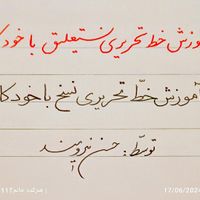 آموزش خط تحریری نستعلیق با خودکا
آموزش خطّ تحریری نسخ با خودکا
توسّط: حسن نیرومند
17/06/2024